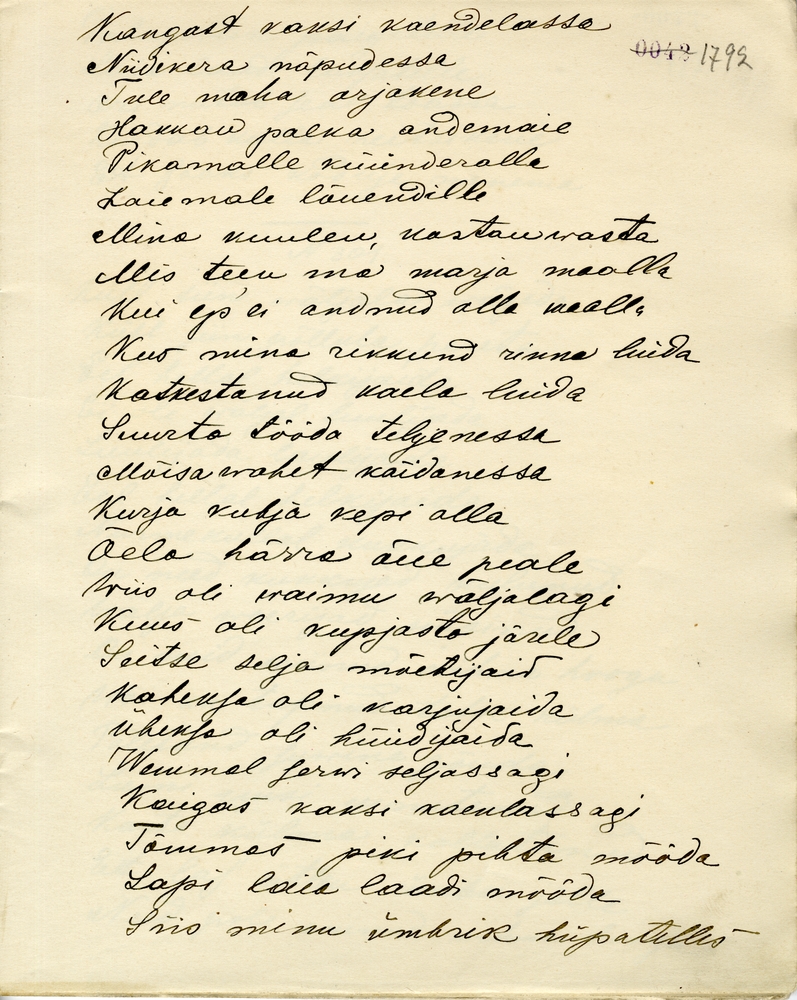 Kangast kaksi kaendelassa
0043 1792
Niidikera näpudessa
Tule maha orjakene
Hakkan palka andemaie
Pikamalle küünderalle
Laiemale lõuendille
Mina kuulen, kostan wasta
Mis teen ma marja maalla
Kui ep ei andnud olla maalla
Kus mina rikkund rinna luida
Katkestanud kaela luida
Suurta tööda teljenessa
Mõisa wahet käidanessa
Kurja kubja kepi alla
Õela härra õue peale
Wiis oli waimu wäljalagi
Kuus oli kupjasta järele
Seitse selja mõetijaid
Kaheksa oli karjujaida
Üheksa oli hüüdijaida
Wemmal serwi seljassagi
Kaigas kaksi kaenlassagi
Tõmmas piki pihta mööda
Lapi laia laadi mööda
Siis minu ümbrik hüpatelles